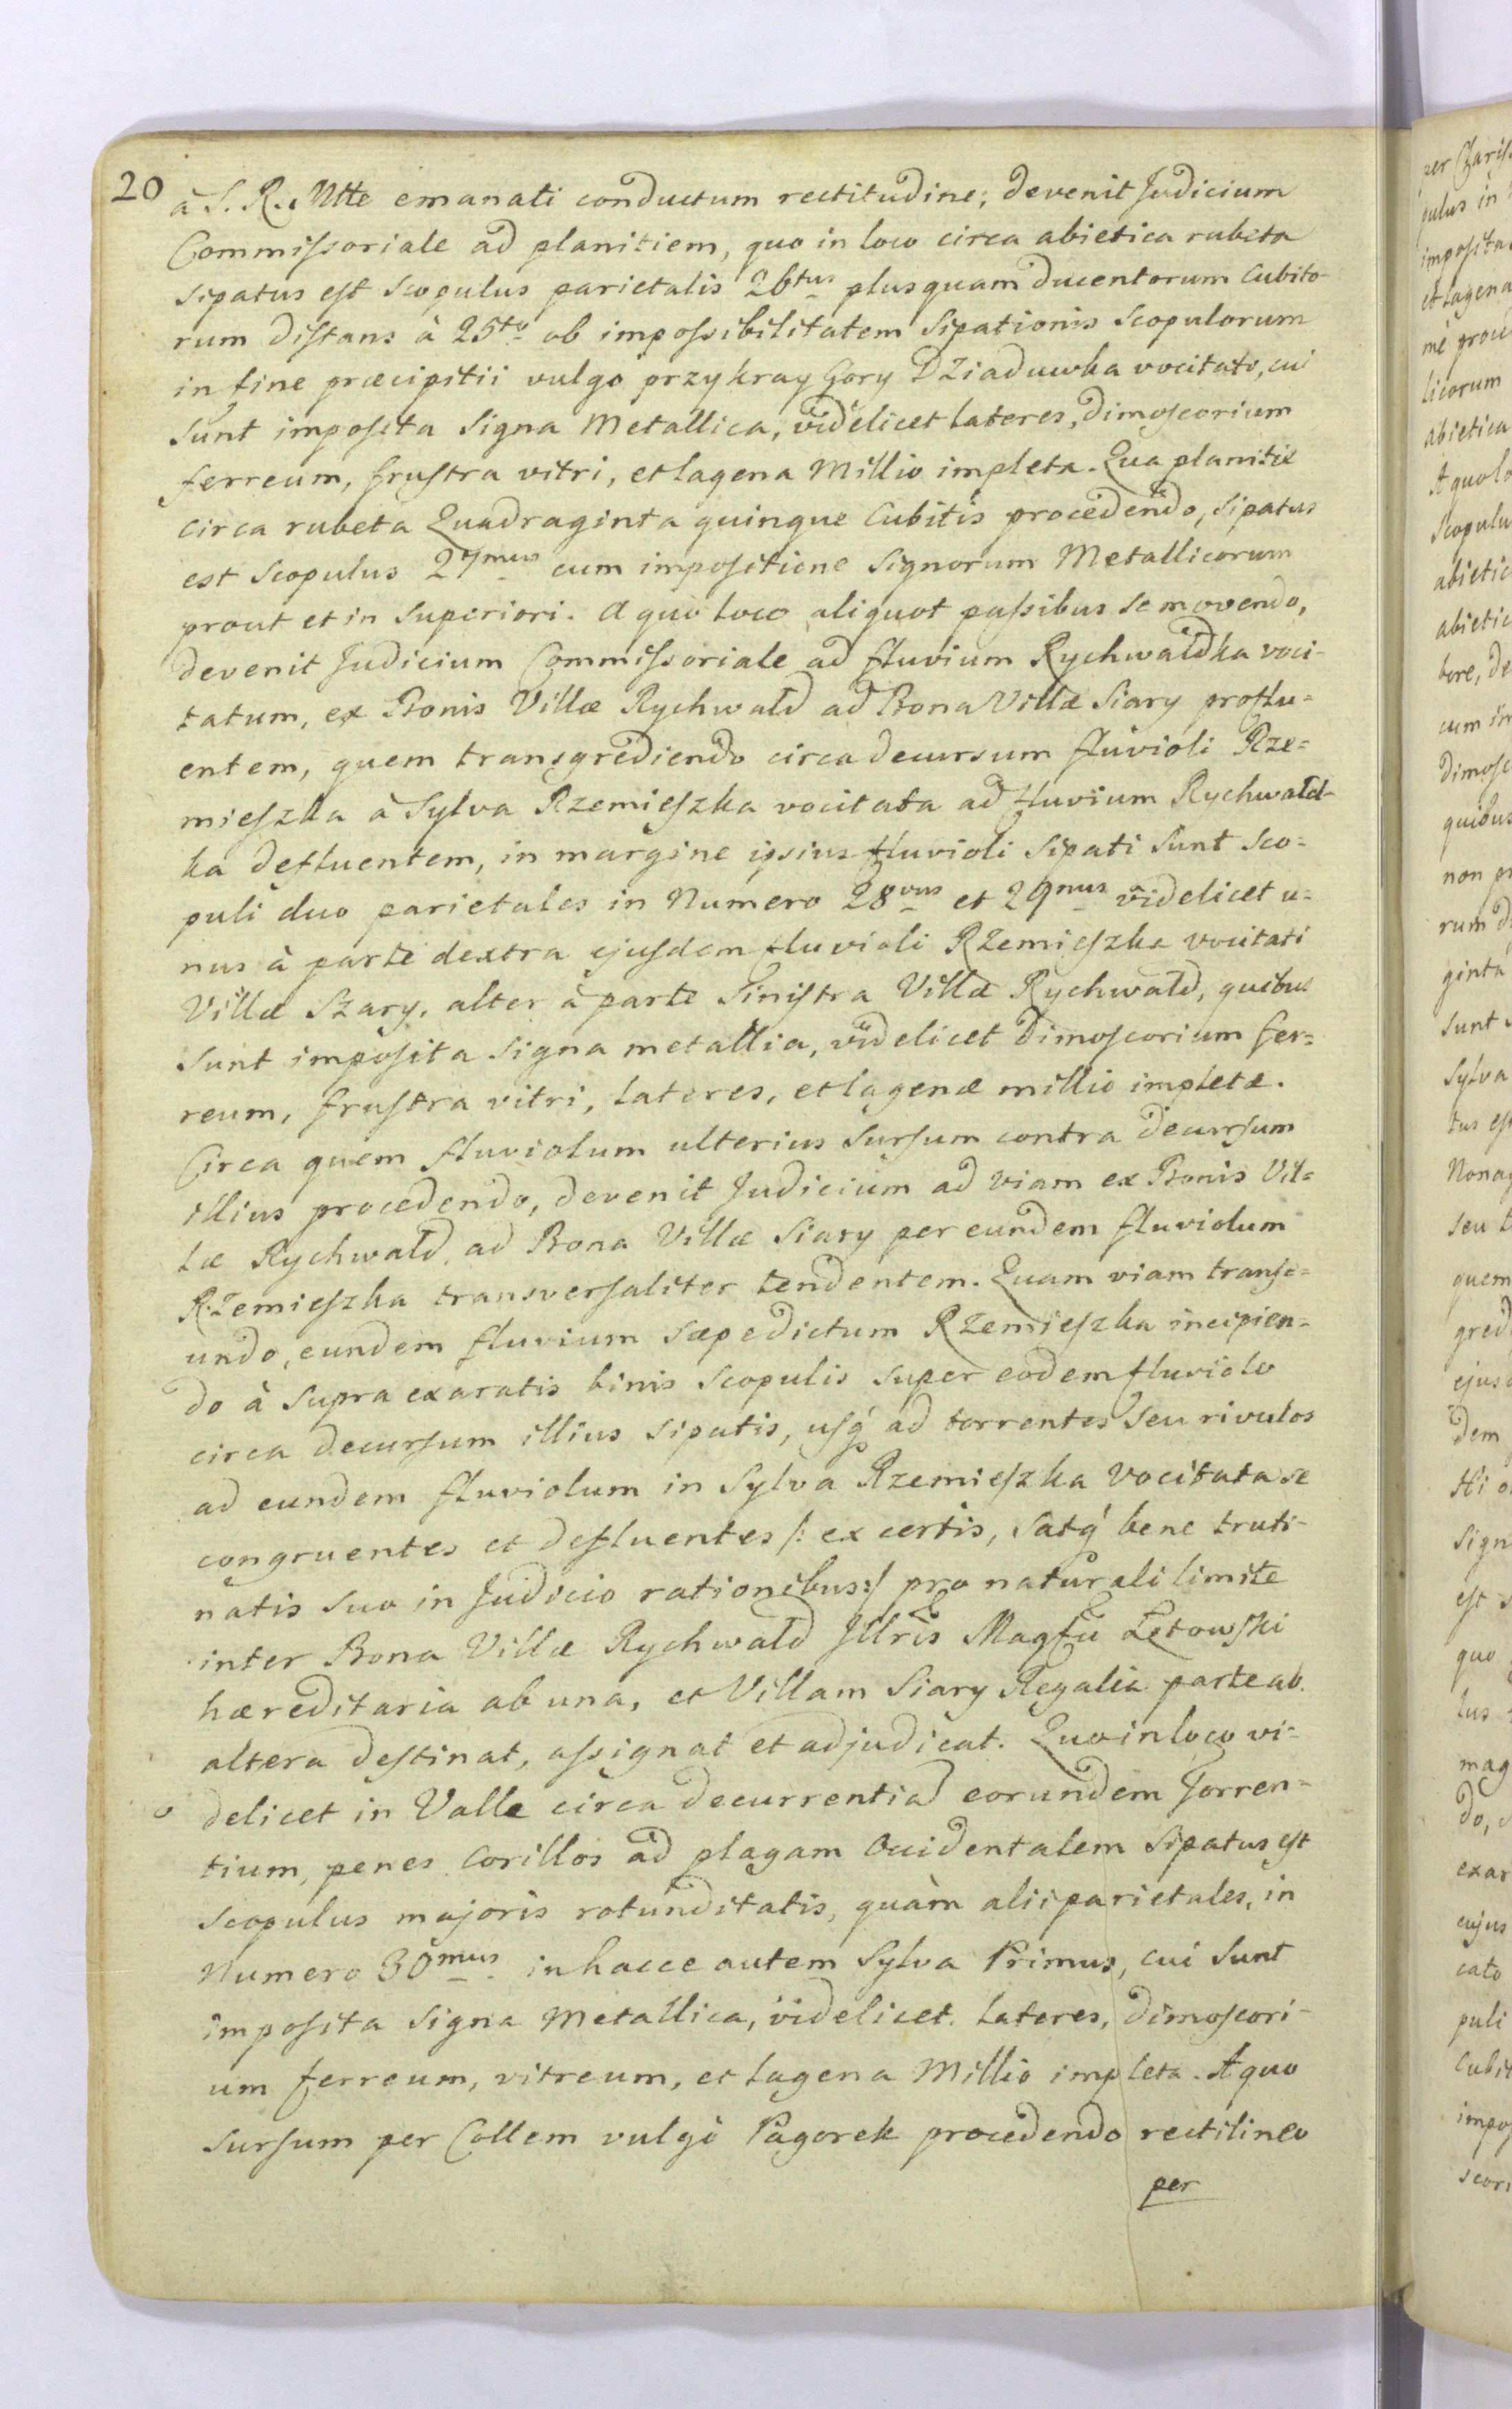 20
à S. R. Mtte emanati conductum rectitudine; devenit Judicium
Commiſsoriale ad planitiem, quo in loco circa abietica rubeta
sipatus eſt Scopulus parietalis 26tus plusquam ducentorum Cubito-
rum diſtans à 25to ob impoſsibilitatem Sipationis Scopulorum
in fine præcipitii vulgo przykray Gory Dziaduwka vocitato, cui
Sunt impoſita Signa Metallica, videlicet Lateres, dimoſcorium
ferreum, fruſtra vitri, et Lagena Millio impleta. Qua planitie
circa rubeta Quadraginta quinque Cubitis procedendo, sipatus
est Scopulus 27mus cum impoſitione Signorum Metallicorum
prout et in Superiori. A quo loco aliquot paſsibus se movendo,
devenit Judicium Commiſsoriale ad fluvium Rychwałdka voci-
tatum, ex Bonis Villæ Rychwałd ad Bona Villæ Siary proflu=
entem, quem transgrediendo circa decursum fluvioli Rze=
mieſzka à Sylva Rzemieſzka vocitata ad fluvium Rychwałd-
ka defluentem, in margine ipsius fluvioli Sipati Sunt Sco=
puli duo parietales in Numero 28vus et 29nus videlicet u=
nus à parte dextra ejuſdem fluvioli Rzemieſzka vocitati
Villæ Szary, alter à parte Siniſtra Villæ Rychwałd, quibus
Sunt impoſita Signa metallia, videlicet Dimoſcorium fer=
reum, fruſtra vitri, Lateres, et lagenæ millio impletæ.
Circa quem fluviolum ulterius Surſum contra decurſum
illius procedendo, devenit Judicium ad viam ex Bonis Vil=
læ Rychwałd, ad Bona Villæ Siary per eundem fluviolum
Rzemieſzka transverſaliter tendentem. Quam viam tranſe=
undo, eundem fluvium Sæpedictum Rzemieſzka incipien=
do à Supra exaratis binis Scopulis Super eodem fluviolo
circa decurſum illius Sipatis, uſq́ ad torrentes Seu rivulos
ad eundem fluviolum in Sylva Rzemieſzka Vocitata se
congruentes et defluentes /: ex certis, Satq́ bene truti-
natis Suo in Judicio rationibus :/ pro naturali limite
inter Bona Villæ Rychwałd Illris Magfci Łętowſki
hæreditaria ab una, et Villam Siary Regalia parte ab
altera deſtinat, aſsignat et adjudicat. Quo in loco vi-
delicet in Valle circa decurrentia eorundem Torren=
tium, penes Corillos ad plagam Occidentalem Sipatus eſt
Scopulus majoris rotunditatis, quàm alii parietales, in
Numero 30mus in hacce autem Sylva Primus, cui Sunt
impoſita Signa Metallica, videlicet. Lateres, dimoſcori-
um ferreum, vitreum, et Lagena Millio impleta. A quo
Surſum per Collem vulgò Pagorek procedendo rectilineo
per